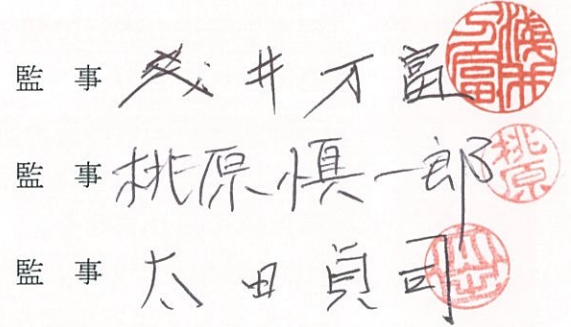 監 事 浅井万富
監 事 桃原慎一郎 桃原
監 事 太田貞司